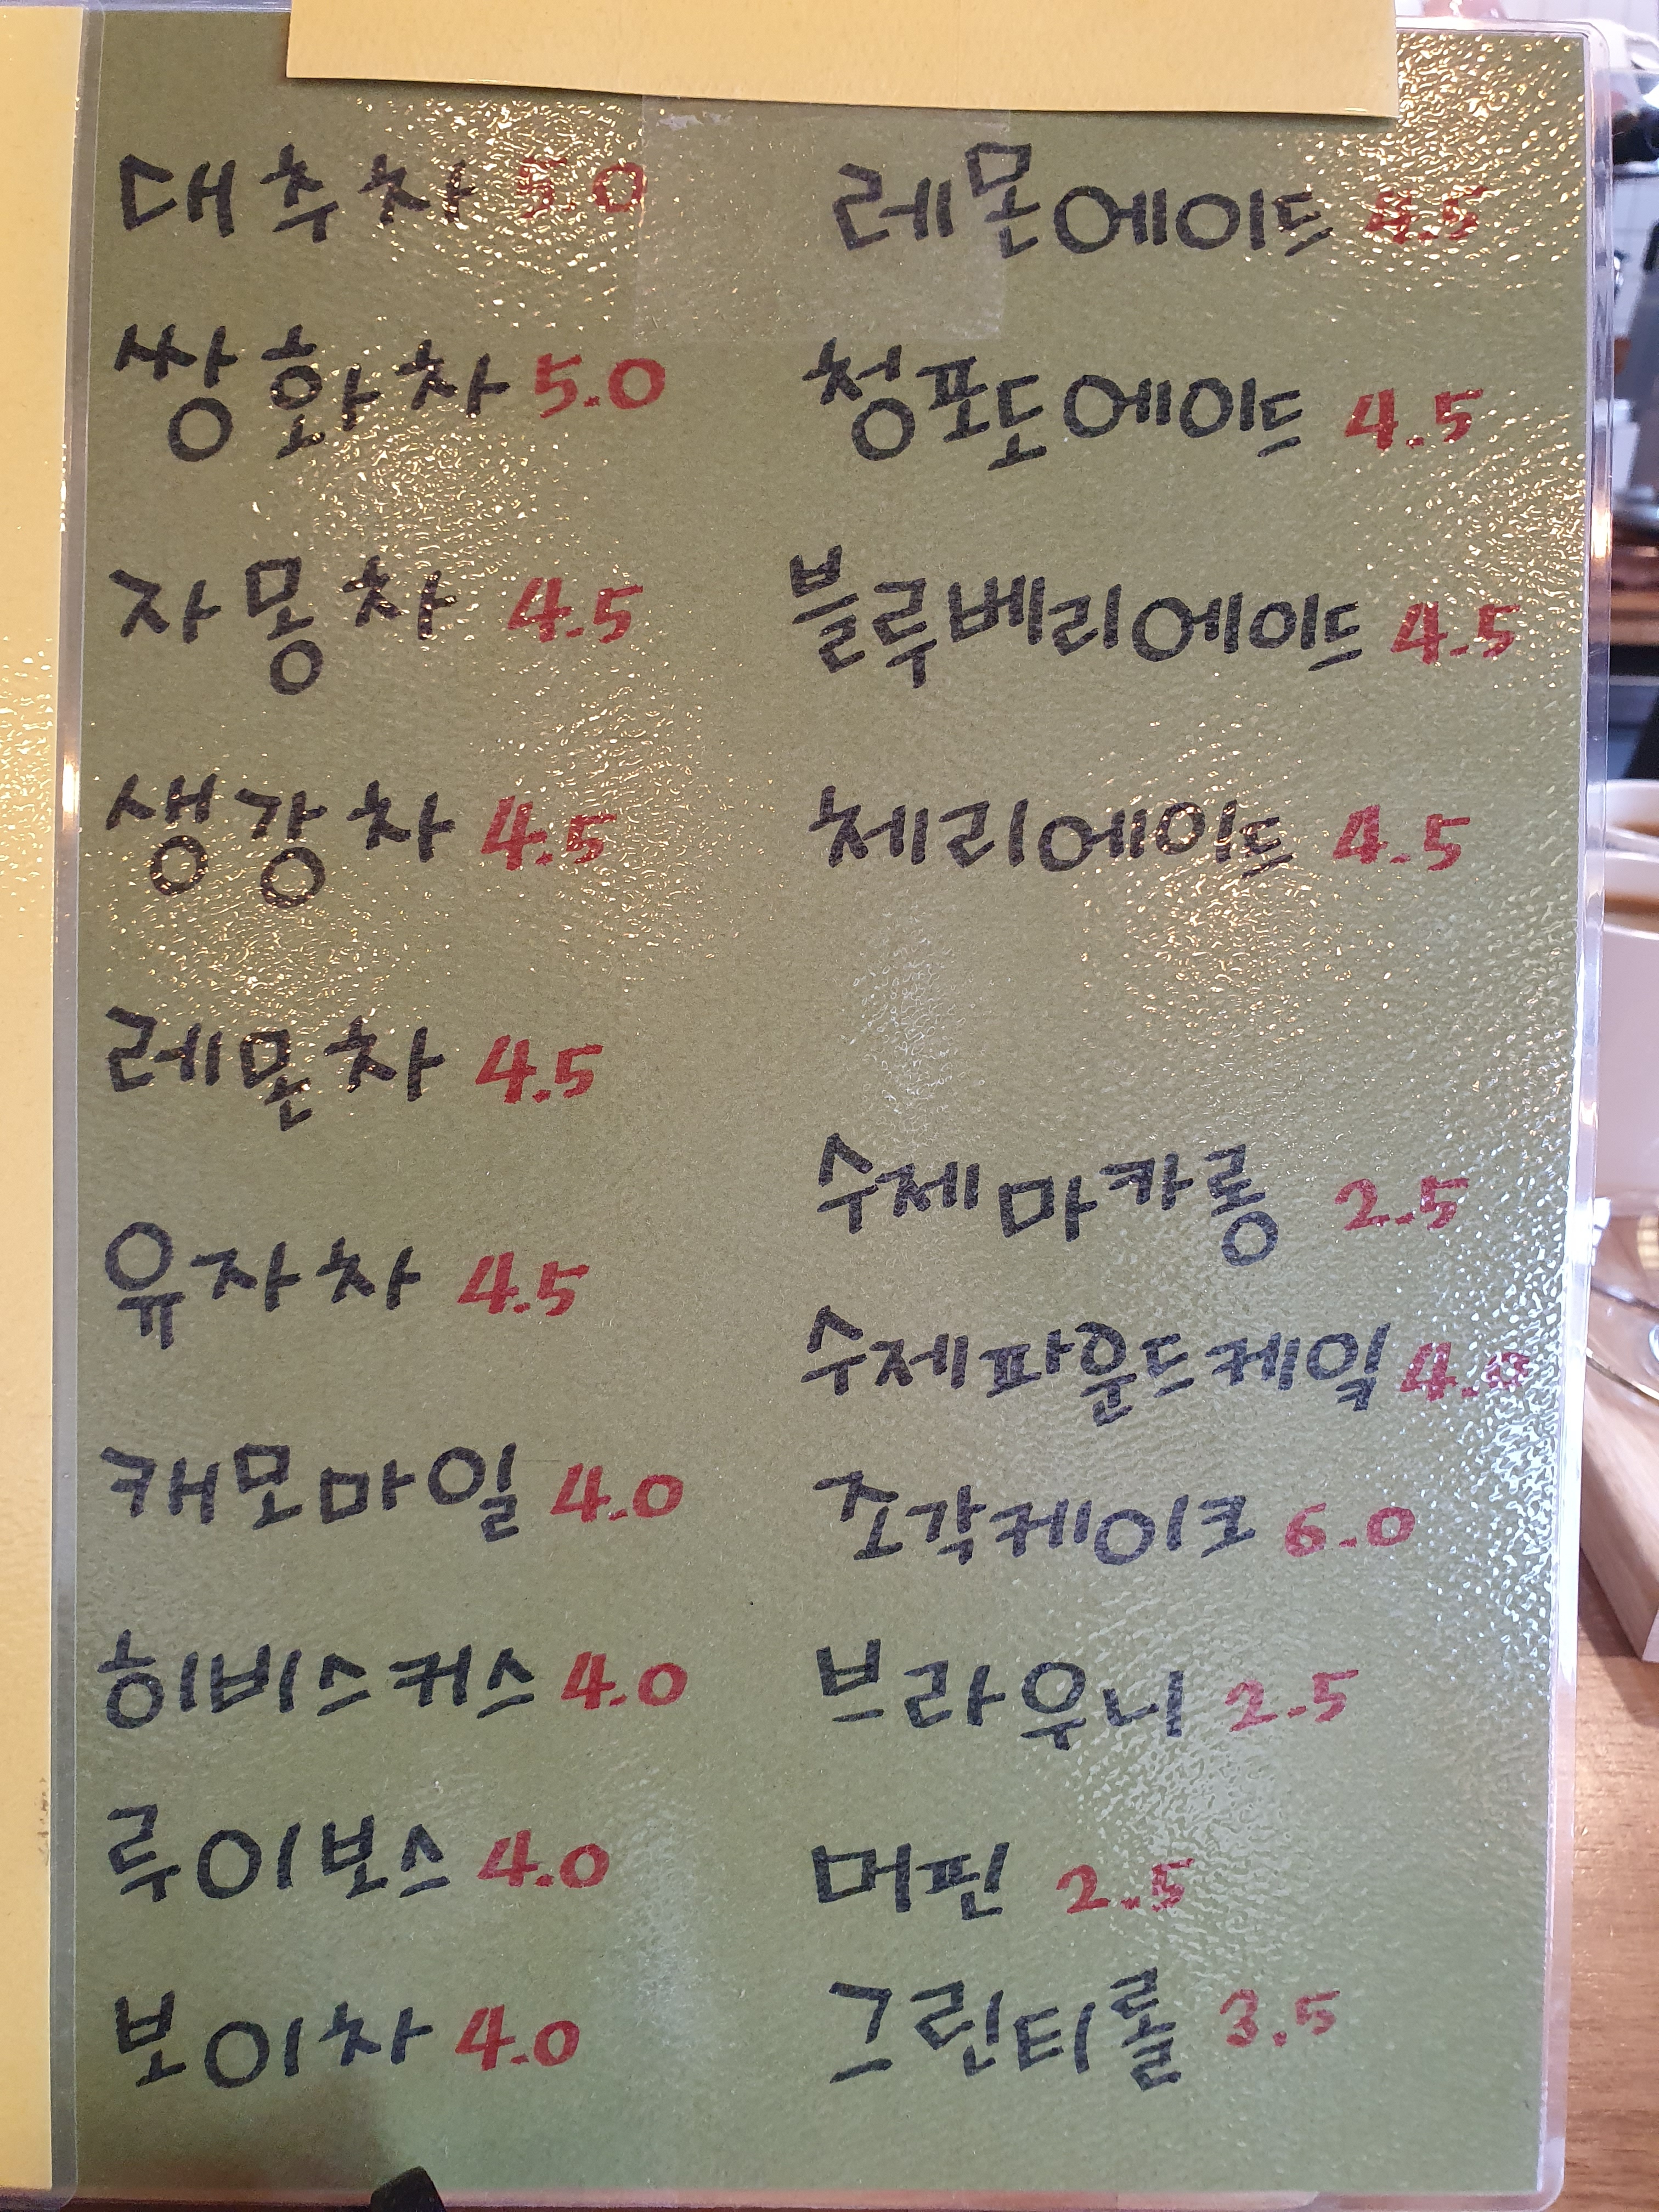 대추차 5.0
쌍화차 5.0
자몽차 4.5
생강차 4.5
레몬차 4.5
유자차 4.5
캐모마일 4.0
히비스커스 4.0
루이보스 4.0
보이차 4.0
레몬에이드 4.5
청포도에이드 4.5
블루베리에이드 4.5
체리에이드 4.5
수제마카롱 2.5
수제파운드케잌 4.0
조각케이크 6.0
브라우니 2.5
머핀 2.5
그린티롤 3.5